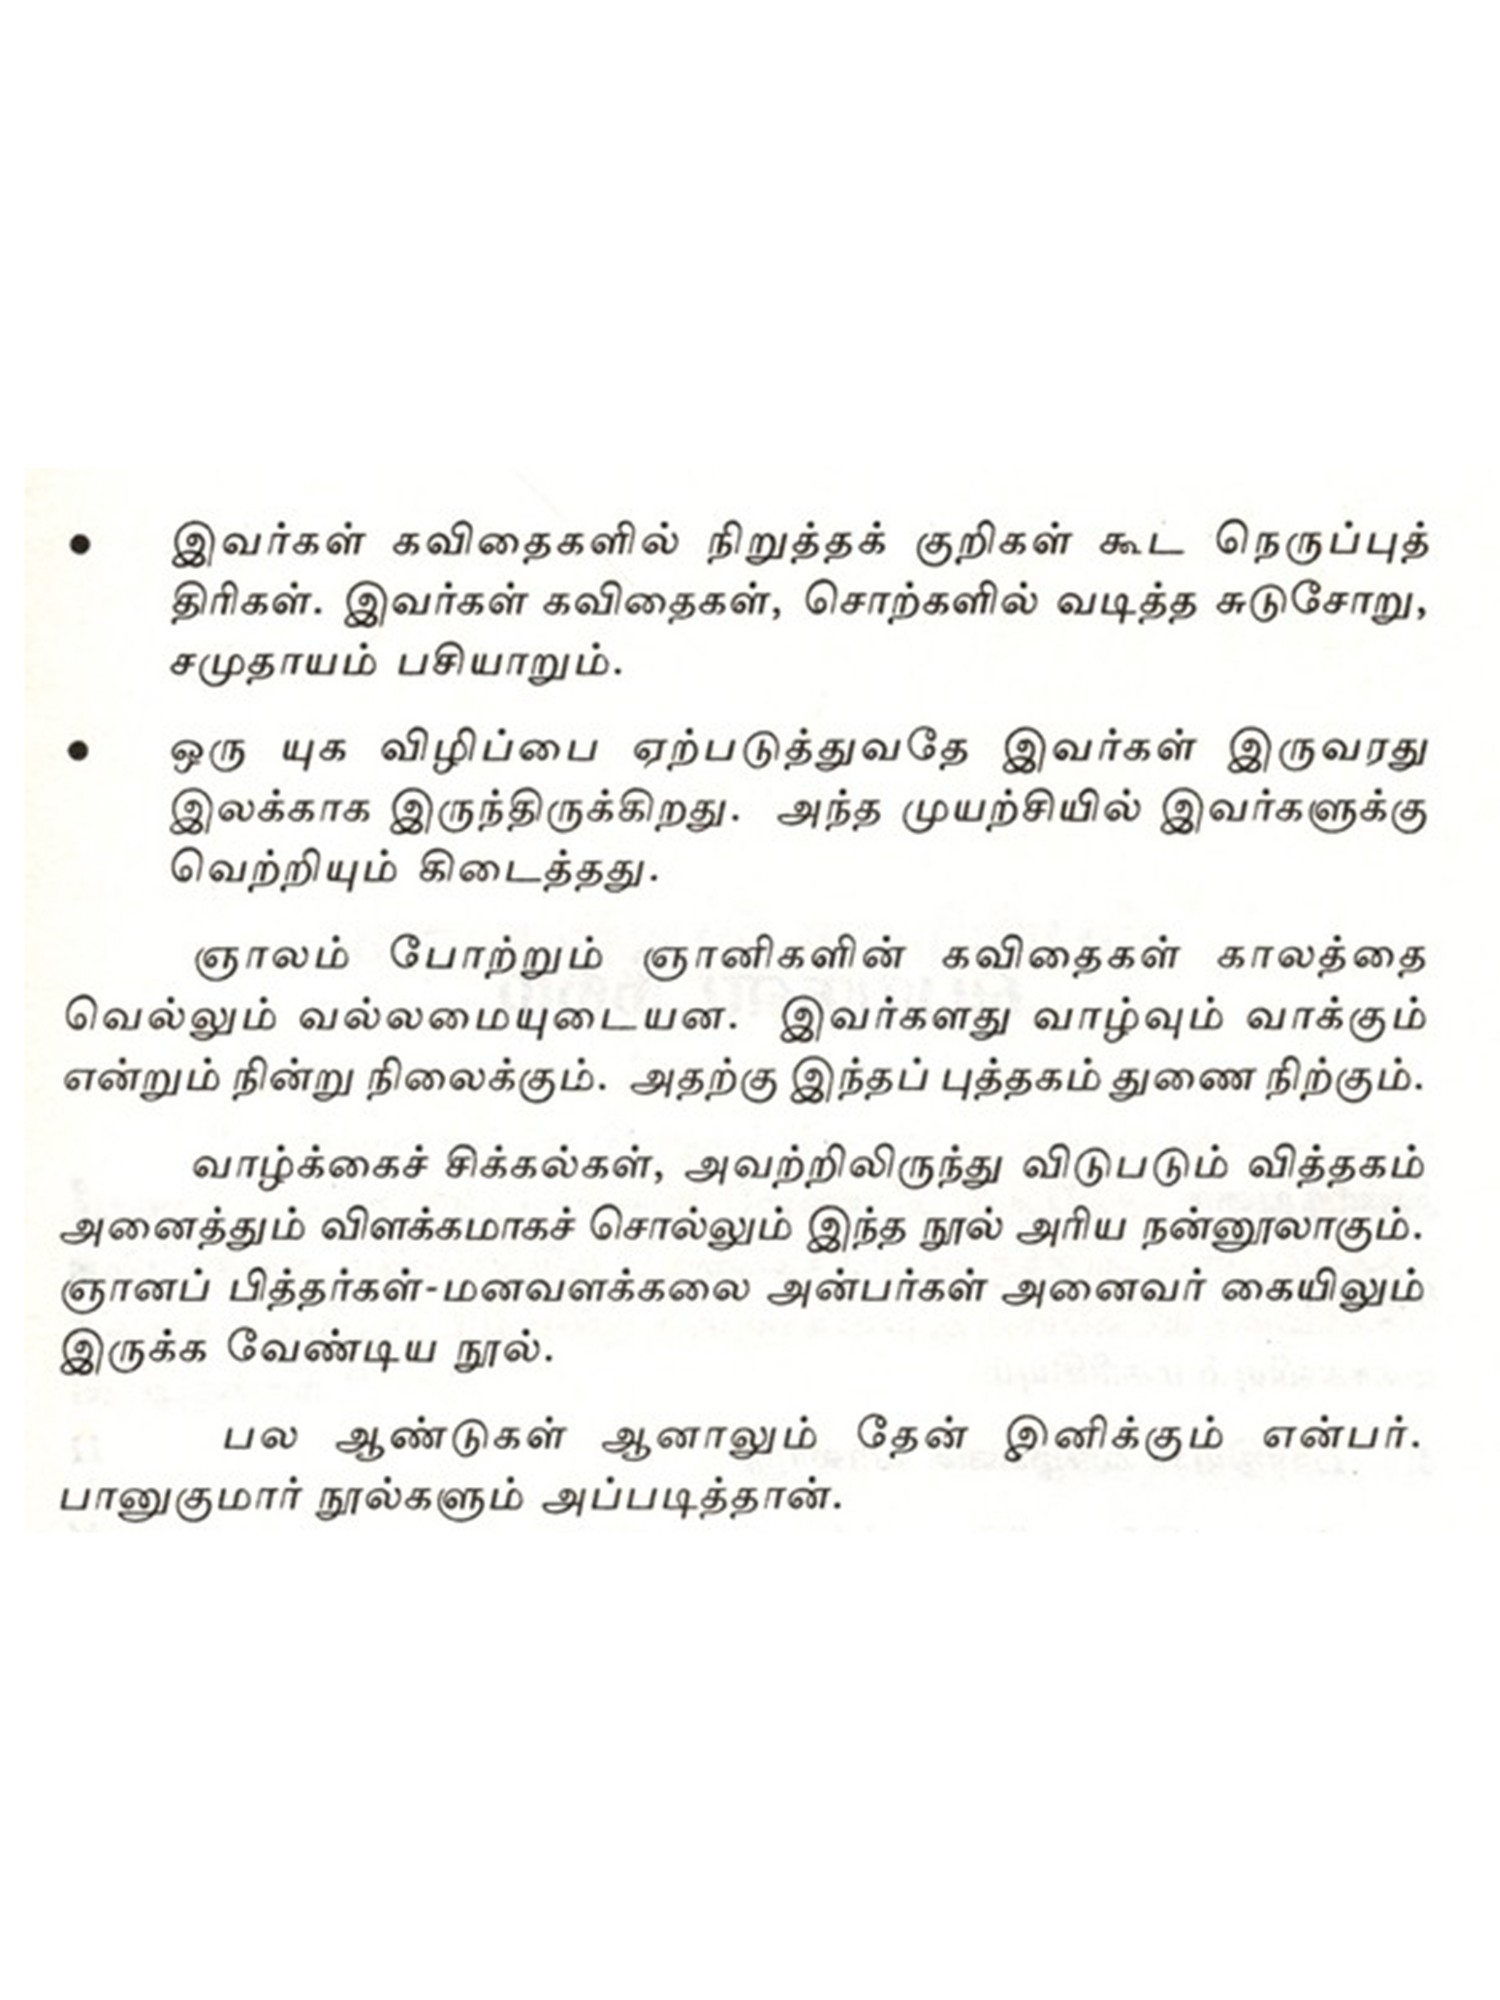 ● இவர்கள் கவிதைகளில் நிறுத்தக் குறிகள் கூட நெருப்புத்
திரிகள். இவர்கள் கவிதைகள், சொற்களில் வடித்த சுடுசோறு,
சமுதாயம் பசியாறும்.
● ஒரு யுக விழிப்பை ஏற்படுத்துவதே இவர்கள் இருவரது
இலக்காக இருந்திருக்கிறது. அந்த முயற்சியில் இவர்களுக்கு
வெற்றியும் கிடைத்தது.
ஞாலம் போற்றும் ஞானிகளின் கவிதைகள் காலத்தை
வெல்லும் வல்லமையுடையன. இவர்களது வாழ்வும் வாக்கும்
என்றும் நின்று நிலைக்கும். அதற்கு இந்தப் புத்தகம் துணை நிற்கும்.
வாழ்க்கைச் சிக்கல்கள், அவற்றிலிருந்து விடுபடும் வித்தகம்
அனைத்தும் விளக்கமாகச் சொல்லும் இந்த நூல் அரிய நன்னூலாகும்.
ஞானப் பித்தர்கள்-மனவளக்கலை அன்பர்கள் அனைவர் கையிலும்
இருக்க வேண்டிய நூல்.
பல ஆண்டுகள் ஆனாலும் தேன் இனிக்கும் என்பர்.
பானுகுமார் நூல்களும் அப்படித்தான்.